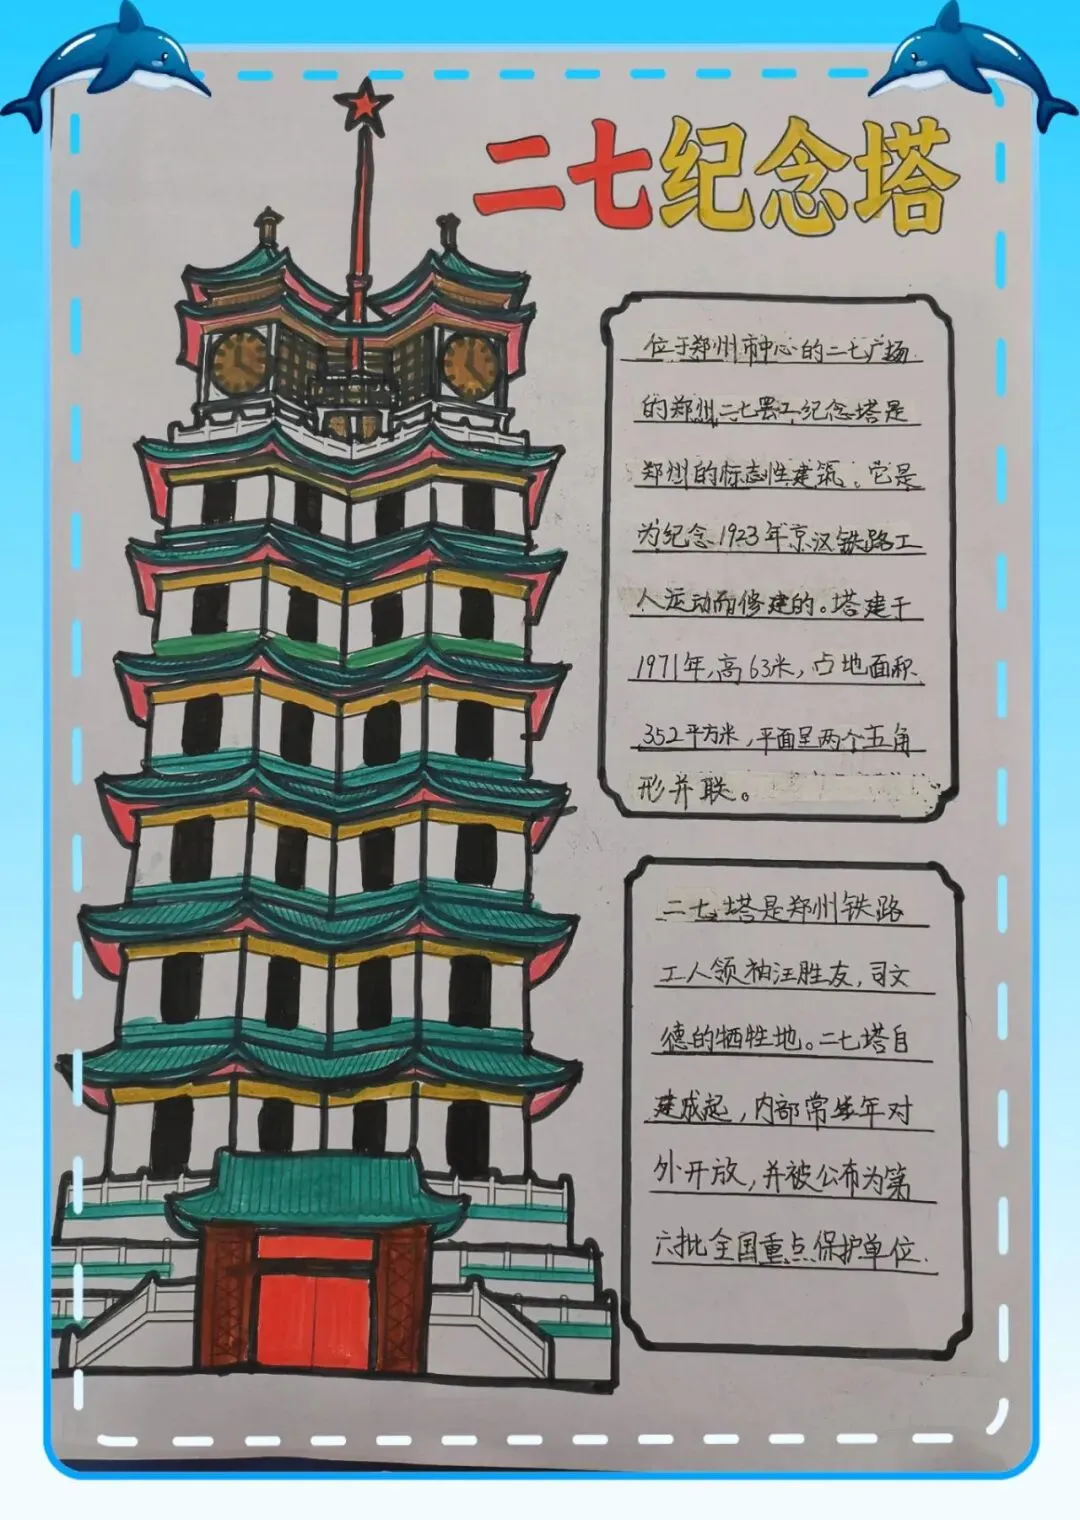 二七纪念塔
位于郑州市中心的二七广场
的郑州二七罢工纪念塔是
郑州的标志性建筑。它是
为纪念1923年京汉铁路工
人运动而修建的。塔建于
1971年,高63米,占地面积
352平方米,平面呈两个五角
形并联。
二七塔是郑州铁路
工人领袖汪胜友,司文
德的牺牲地。二七塔自
建成起,内部常年对
外开放,并被公布为第
六批全国重点保护单位.